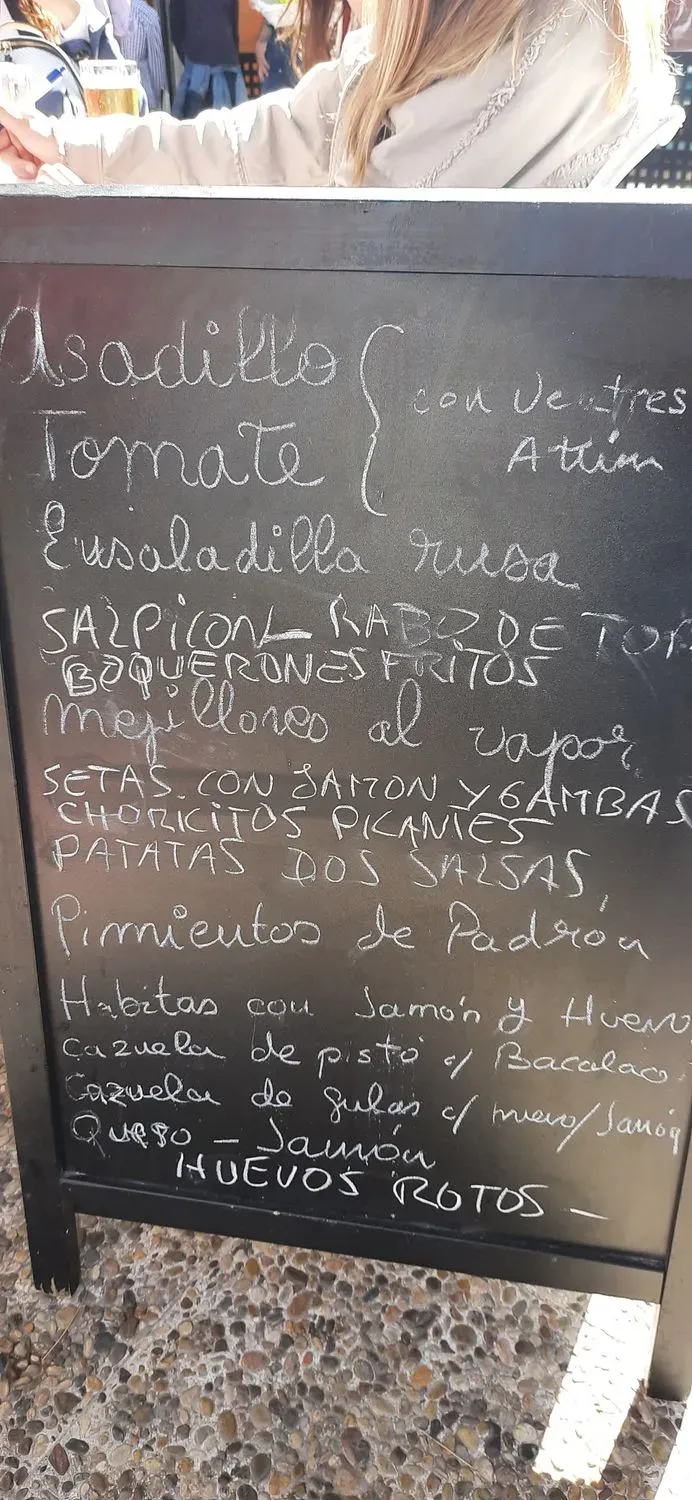 Asadillo
Tomate
con Ventres
Atún
Ensaladilla rusa
SALPICON - RABO DE TOR
BOQUERONES FRITOS
mejillones al vapor
SETAS CON JAMON Y GAMBAS
CHORICITOS PICANTES
PATATAS DOS SALSAS,
Pimientos de Padrón
Habitas con Jamón y Huevo
Cazuela de pisto c/ Bacalao
Cazuela de gulas c/ huevo/Jamón
Queso - Jamón
HUEVOS ROTOS -